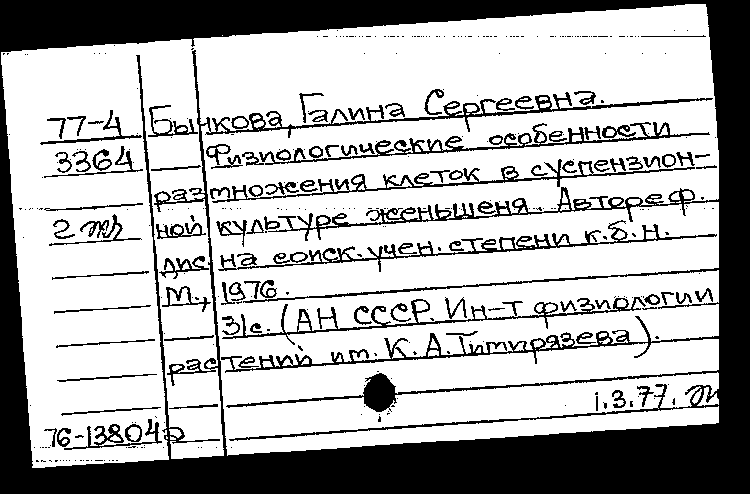 77-4 Бычкова, Галина Сергеевна.
3364 Физиологические особенности
размножения клеток в суспензион-
2 ной культуре женьшеня. Автореф.
дис. на соиск. учен. степени к.б.н.
М., 1976.
31с. (АН СССР. Ин-т физиологии
растений им. К. А. Тимирязева).
1.3.77.
76-13804